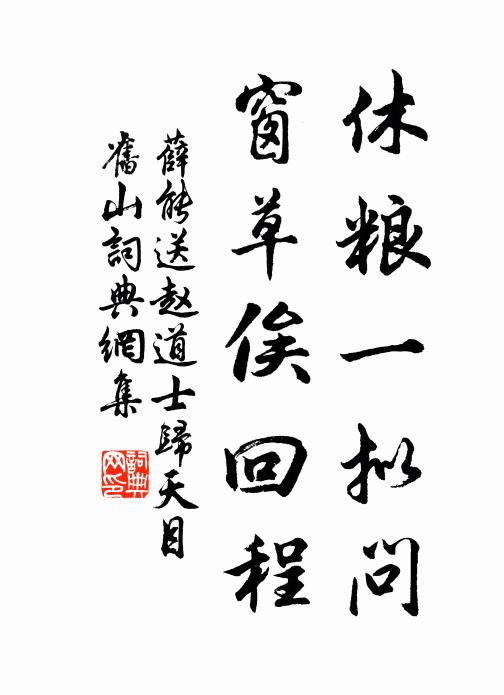 休粮一拟问
窗草俟回程
薛能送赵道士歸天目
舊山詞典網集
詞典网印